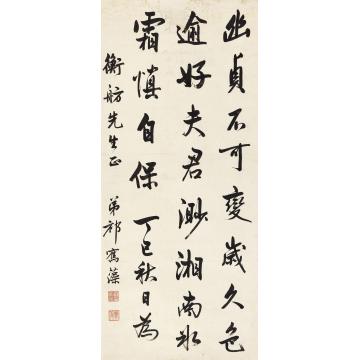 幽貞不可變歲久色
逾好夫君渺湘南冰
霜慎自保丁巳秋日為
衡舫先生正 弟祁寯藻